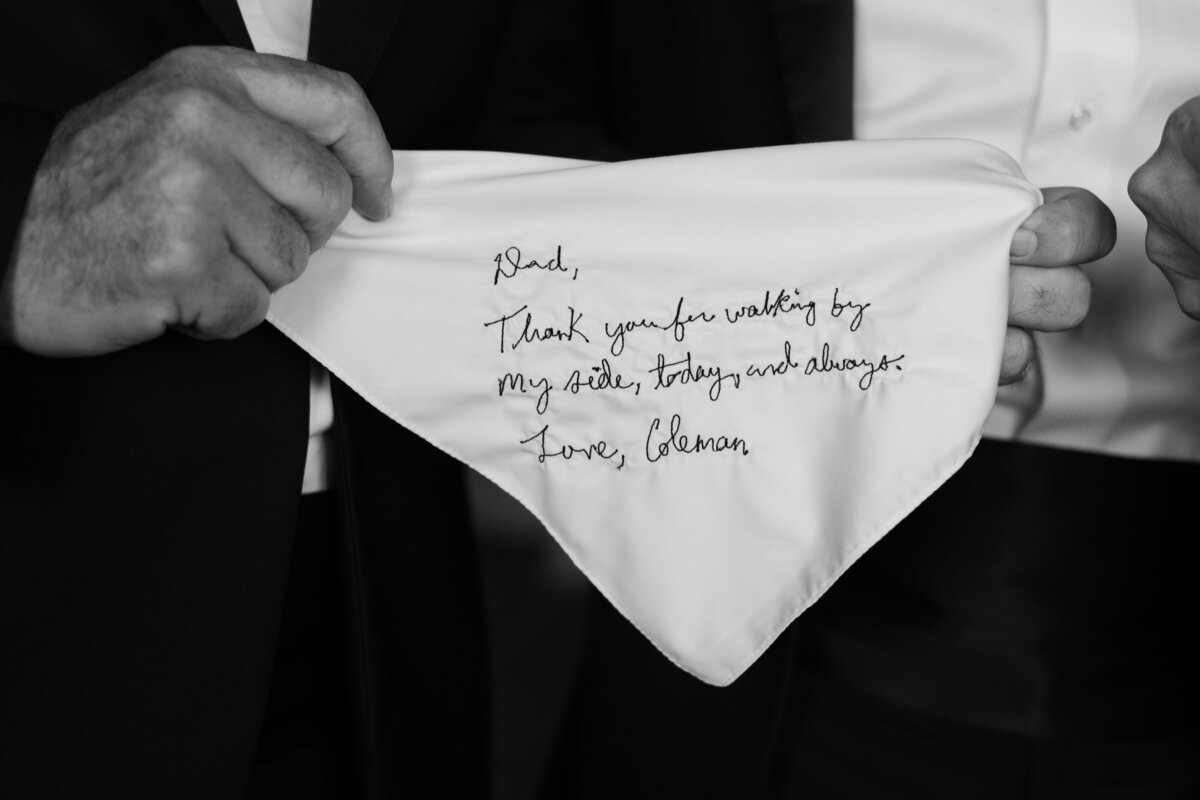 Dad,
Thank you for walking by
my side, today, and always.
Love, Coleman